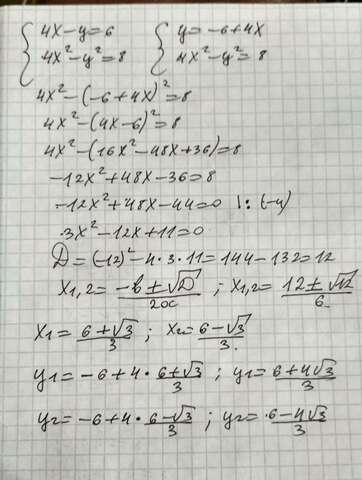 { 4x-y=6 { y=-6+4x
{ 4x²-y²=8 { 4x²-y²=8
4x²-(-6+4x)²=8
4x²-(4x-6)²=8
4x²-(16x²-48x+36)=8
-12x²+48x-36=8
-12x²+48x-44=0 |:(-4)
3x²-12x+11=0
D=(-12)²-4•3•11=144-132=12
x1,2=(-b±√D)/2a ; x1,2=(12±√12)/6
x1=(6+√3)/3 ; x2=(6-√3)/3.
y1=-6+4•(6+√3)/3 ; y1=(6+4√3)/3
y2=-6+4•(6-√3)/3 ; y2=(6-4√3)/3